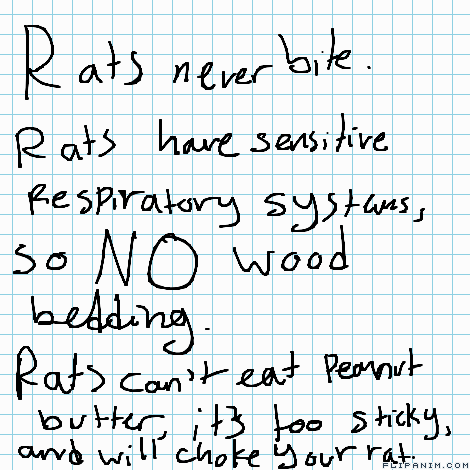 Rats never bite.
Rats have sensitive
Respiratory systems,
so NO wood
bedding.
Rats can't eat Peanut
butter, it's too sticky,
and will choke your rat.
FLIPANIM.COM